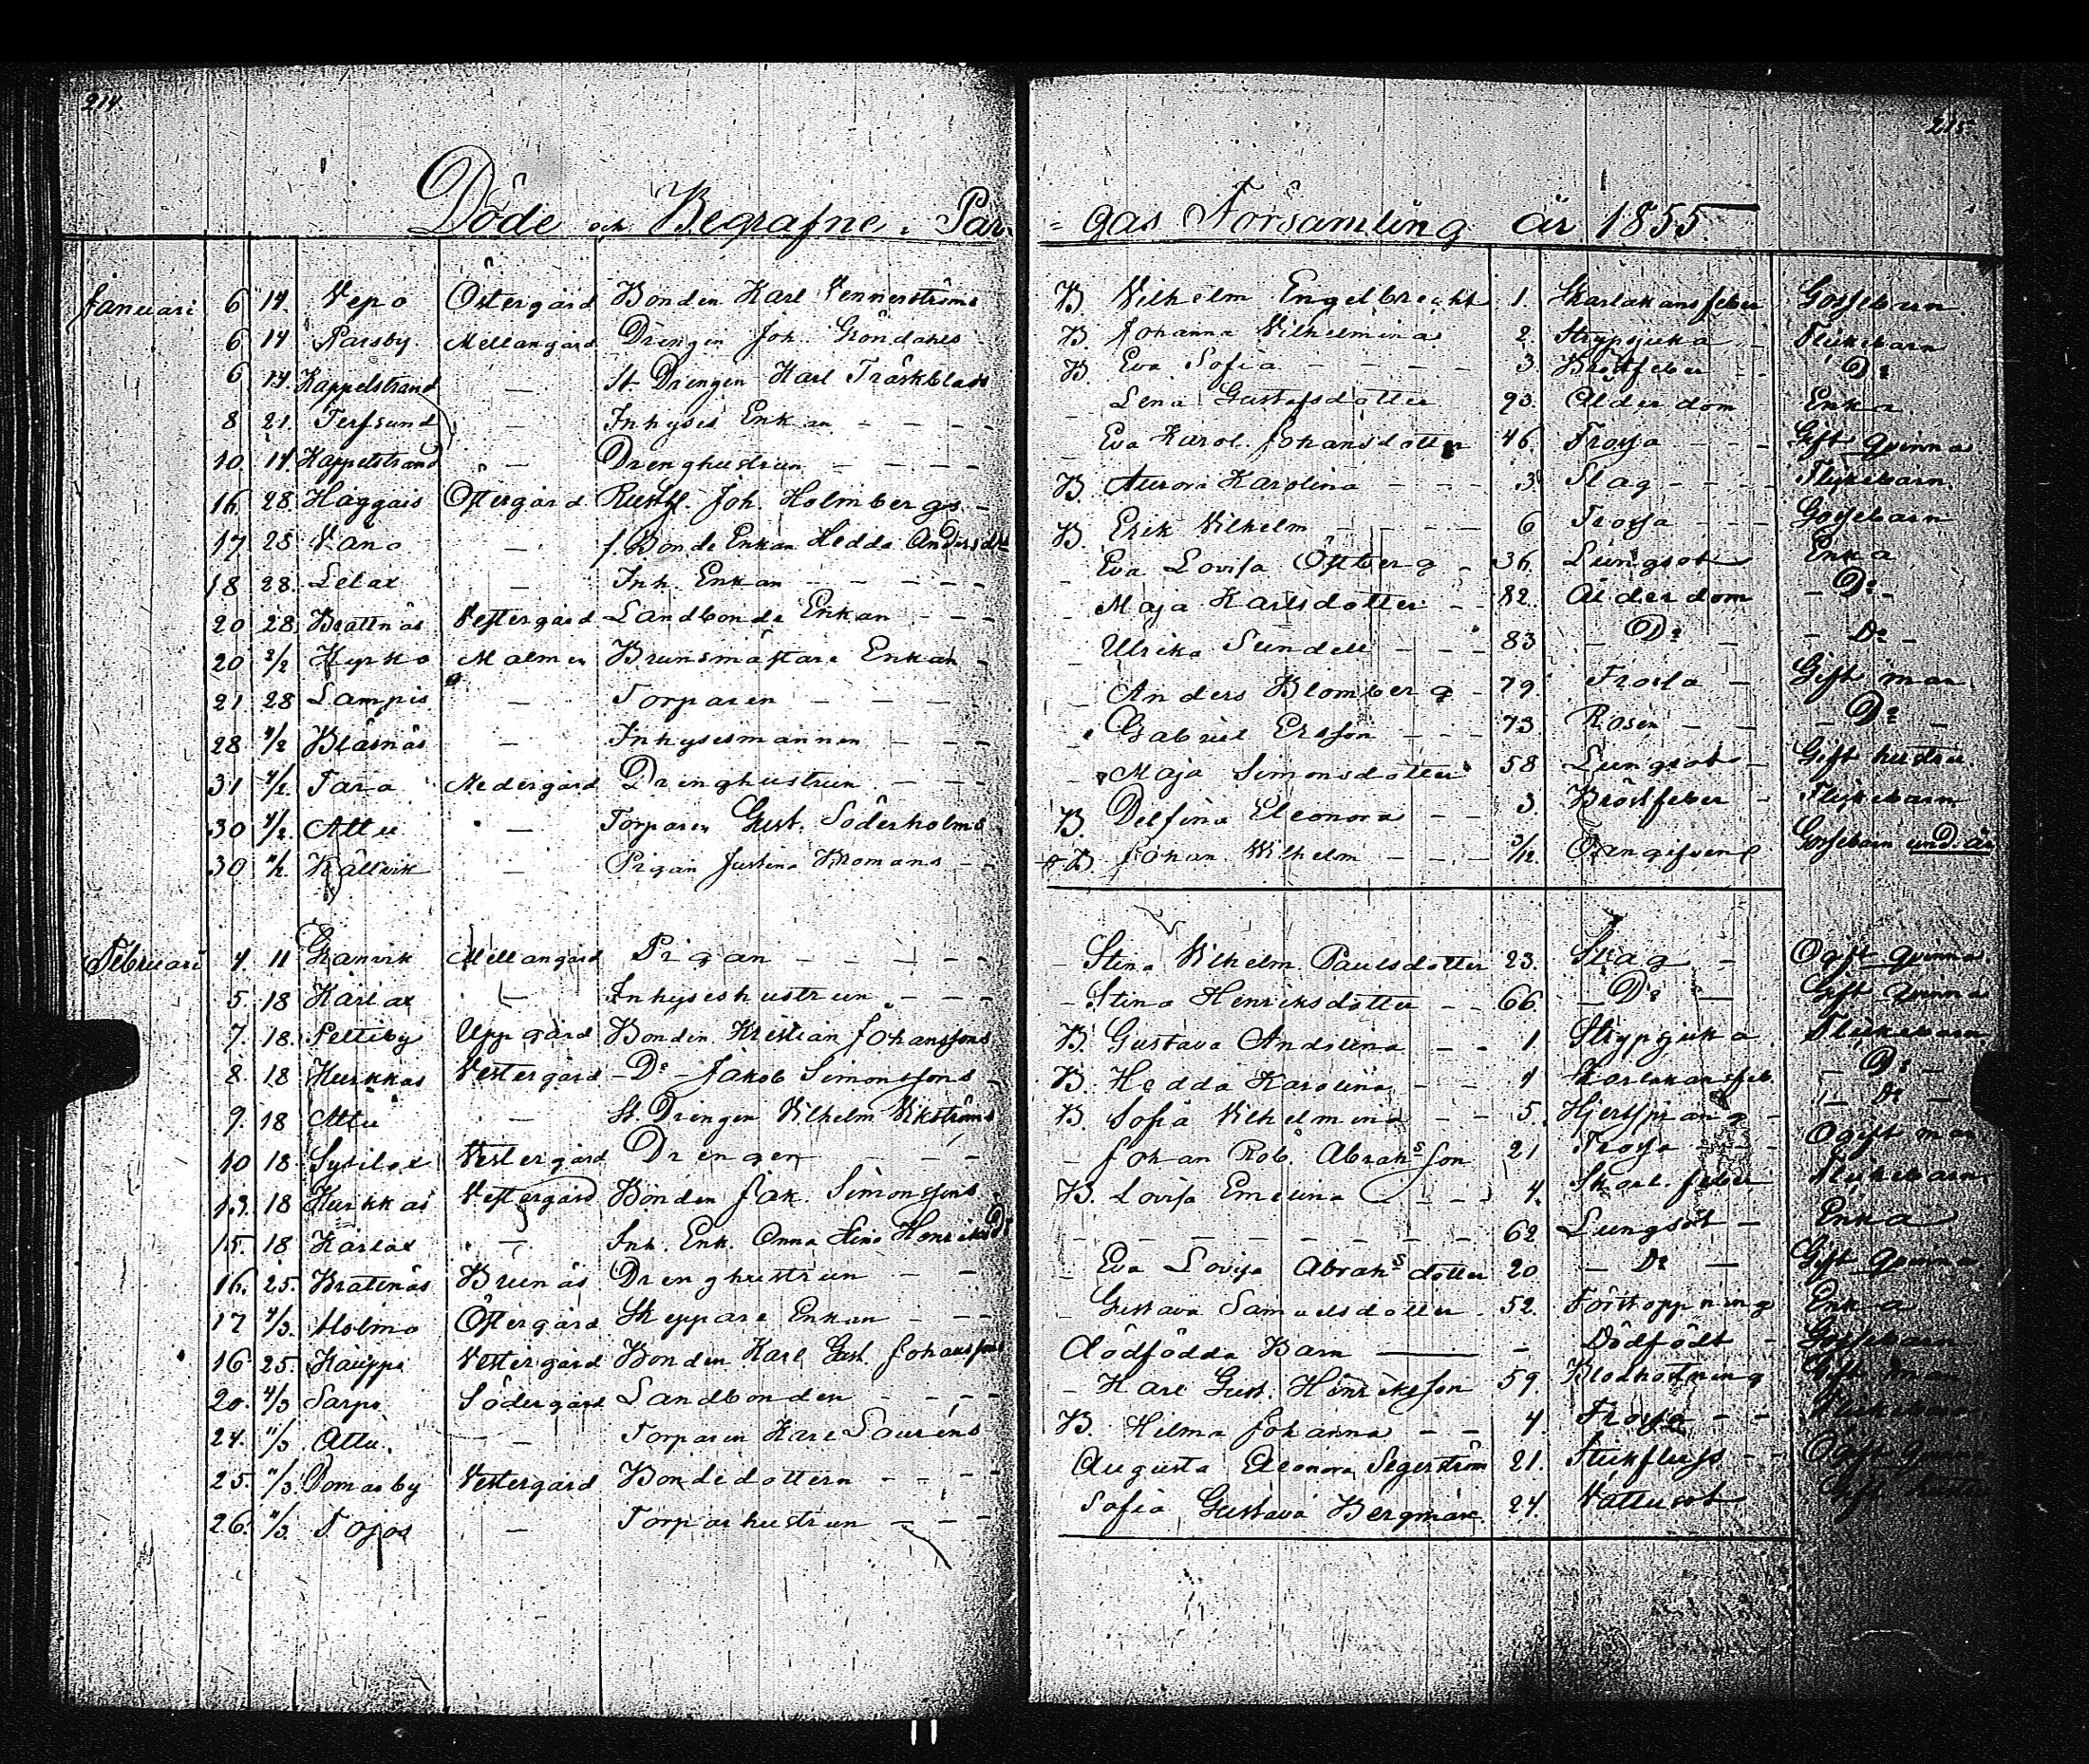 214.
215.
Döde och Begrafne i Par-
=gas Församling år 1855
Januari 6 14. Vepo Östergård Bonden Karl Vennerströms B. Vilhelm Engelbrecht 1. Skarlakansfeber Gossebarn
6 14 Parsby Mellangård Drengen Joh. Gröndahls B. Johanna Vilhelmina 2. Strypsjuka Flickebarn
6. 14. Kappelstrand — St. Drengen Karl Träskblads B. Eva Sofia - - - 3. Bröstfeber - - Do
8 21. Terfsund — Inhyses Enkan - - - - Lena Gustafsdotter 93. Ålderdom Enka
10. 14. Kappelstrand — Drenghustrun - - - - Eva Karol. Johansdotter 46. Frossa - - - Gift qvinna
16. 28. Haggais Östergård Rusth. Joh. Holmbergs - B. Aurora Karolina - - - 3 Slag - - - - Flickebarn.
17 28 Vano — f. Bonde Enkan Hedda Andersdtr B. Erik Vilhelm - - - 6 Frossa - - - Gossebarn
18 28. Lelax — Inh. Enkan - - - - - Eva Lovisa Öfberg - 36. Lungsot Enka
20 28. Brattnäs Vestergård Landbonde Enkan - - - Maja Karlsdotter - - 82. Ålderdom - Do -
20 2/2 Kyrko Malmen Brunsmästare Enkan - - Ulrika Sundell - - - 83 - Do - Do -
21 28 Lampis — Torparen - - - - Anders Blomberg - 79 Frossa - Gift man
28. 4/2 Bläsnäs — Inhysesmannen - - - Gabriel Ersson - - - 73. Rosen - - - Do -
31 4/2. Tara Nedergård Drenghustrun - - - Maja Simonsdotter 58 Lungsot - Gift hustru
30 4/2. Attu — Torparen Gust. Söderholms B. Delfina Eleonora - - 3. Bröstfeber - Flickebarn
30 11/2. Källvik — Pigan Justina Bromans - - B. Johan Wilhelm - - - 3/12. Gossebarn und. år
Februari 4. 11 Granvik Mellangård Pigan - - - - - Stina Vilhelm. Paulsdotter 23. Slag - Ogift qvinna
5. 18 Karlax — Inhyseshustrun - - - Stina Henriksdotter - - 66. - Do - Gift qvinna
7. 18. Pettiby Uppgård Bonden Kristian Johanssons B. Gustava Andolina - - 1. Strypsjuka. Flickebarn
8. 18 Kurkkas Vestergård - Do - Jakob Simonssons - B. Hedda Karolina - - 4 Skarlakansfeb. - Do -
9. 18 Attu — St. Drengen Vilhelm Vikströms B. Sofia Vilhelmina - - 5. Hjertsprång - - Do -
10 18. Sydilax Vestergård Drengen - - - Johan Rob. Abrahsson 21 Frossa - - Ogift man
13. 18 Kurkkas Vestergård Bonden Jak. Simonssons B. Lovisa Emelina - - - 4. Skarl. feber Flickebarn
15. 18 Karlax — Inh. Enk. Anna Lena HenriksD. - - - - - - 62 Lungsot - Enka
16. 25. Brattnäs Brunäs Drenghustrun - - Eva Lovisa Abrahs dotter 20 - Do - Gift qvinna
17 4/3. Mobmo Östergård Skeppare Enkan - - - Gustava Samuelsdotter 52. Förstoppning Enka
16 25. Kauppi Vestergård Bonden Karl Gust. Johanssons Dödfödda Barn —— - Dödfödt - Gossebarn
20. 4/3 Sarpo Södergård Landbonden - - - - Karl Gust. Henriksson 59. Blodhostning Gift man
24. 11/3 Attu. — Torparen Karl Lauréns B. Hilma Johanna - - 4. Frossa - - Flickebarn
25. 11/3. Domarby Vestergård Bondedottern - - - - Augusta Eleonora Segerström 21. Stickfluss - - Ogift qvinna
26. 11/3. Tojos — Torparhustrun - - - Sofia Gustava Bergman 24. Vattusot Gift hustru